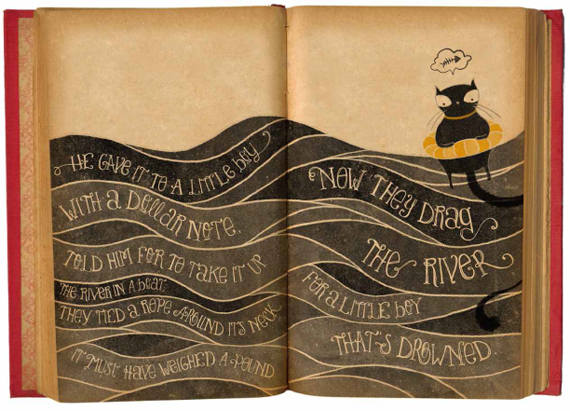 HE GAVE IT TO A LITTLE BOY
WITH A DOLLAR NOTE,
TOLD HIM FOR TO TAKE IT UP
THE RIVER IN A BOAT;
THEY TIED A ROPE AROUND ITS NECK
IT MUST HAVE WEIGHED A POUND
NOW THEY DRAG
THE RIVER
FOR A LITTLE BOY
THAT'S DROWNED.